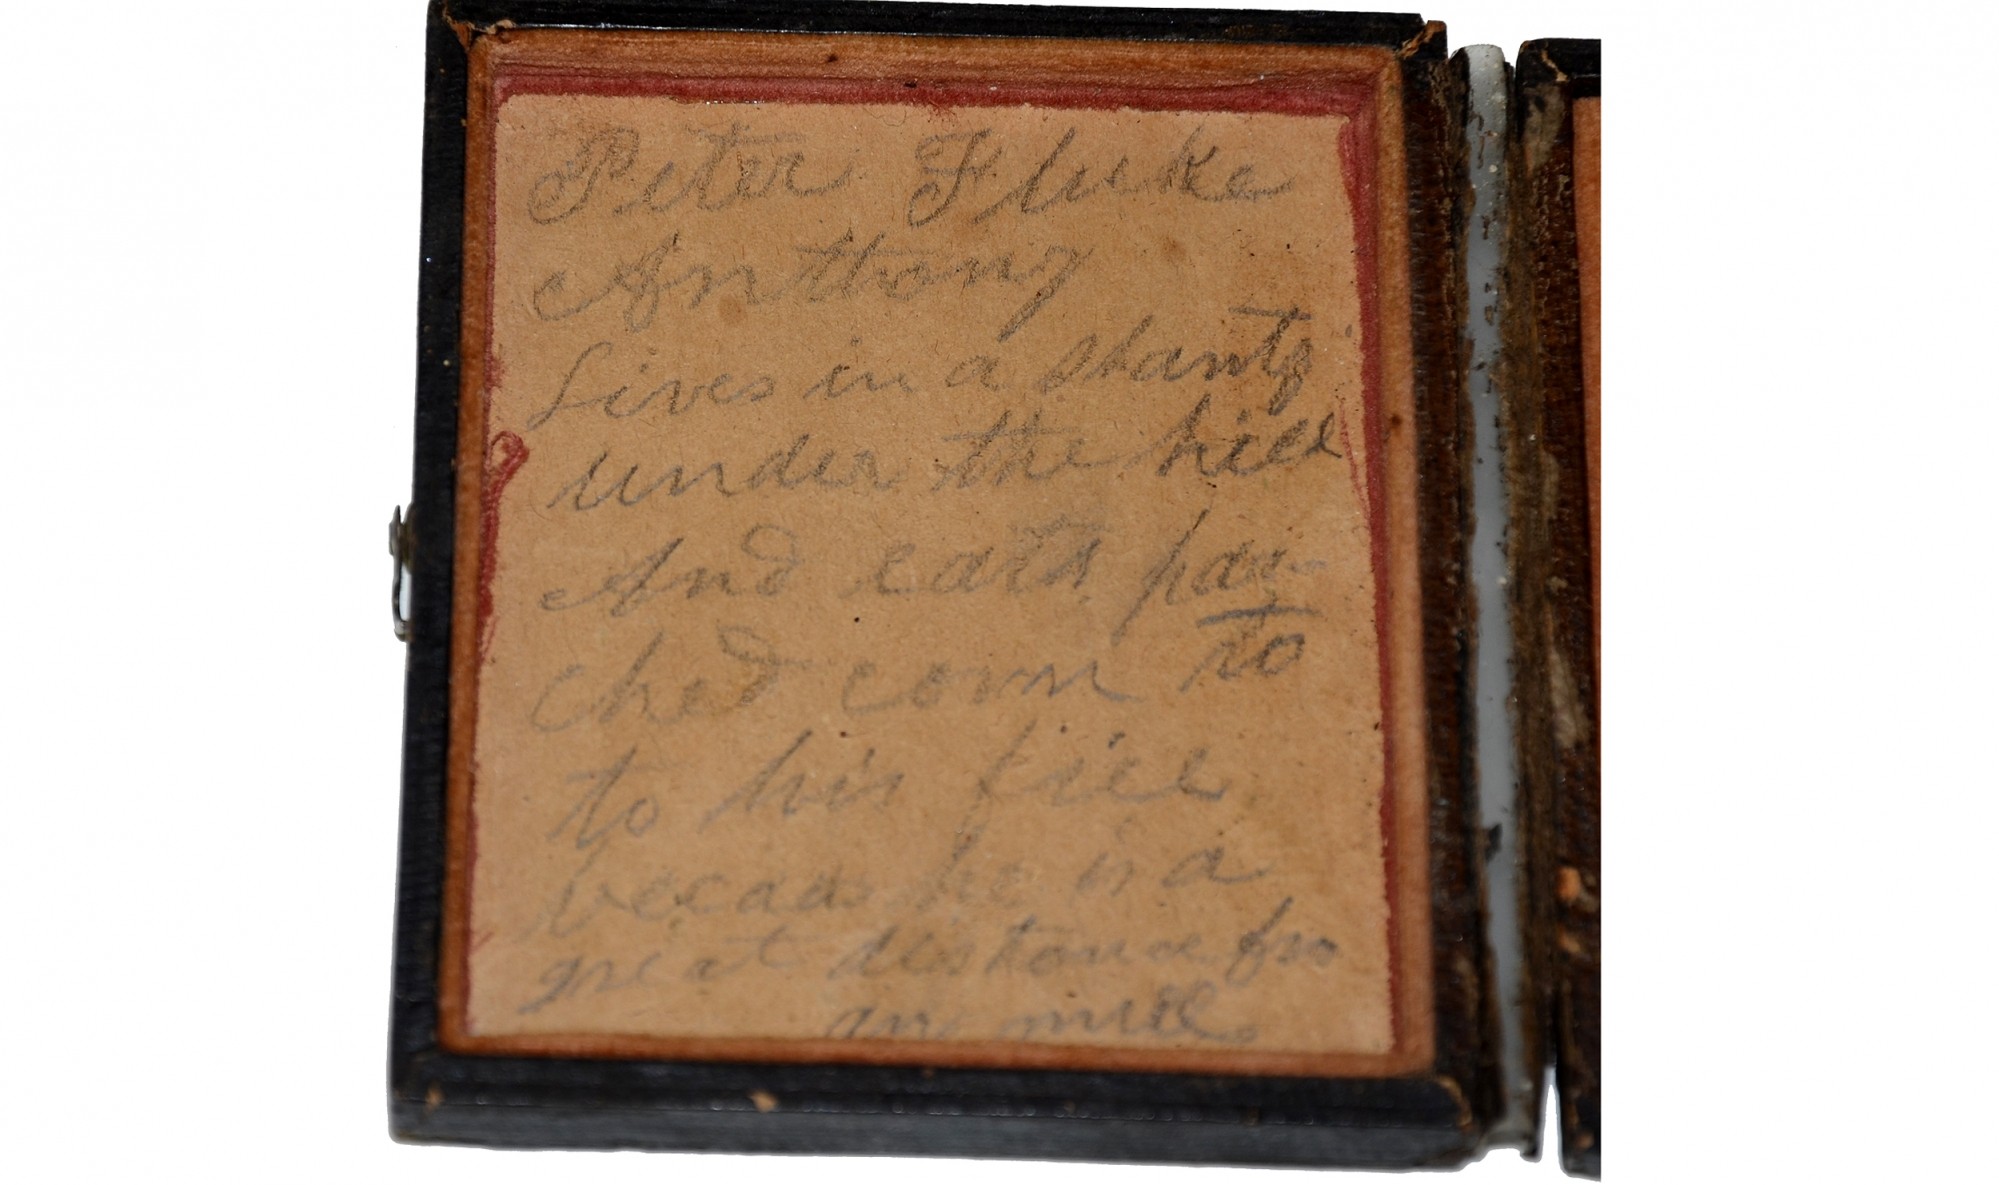 Peter Fluke
Anthony
Lives in a shanty
under the hill
And eats par-
ched corn to
to his fill
becaus he is a
great distance fro
any mill